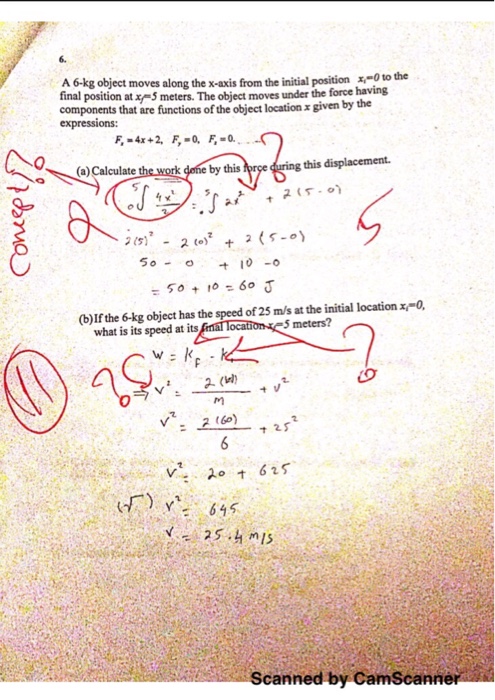 6.
A 6-kg object moves along the x-axis from the initial position xᵢ=0 to the
final position at x_f=5 meters. The object moves under the force having
components that are functions of the object location x given by the
expressions:
Fₓ = 4x+2, Fᵧ =0, F_z =0.
(a) Calculate the work done by this force during this displacement.
concept ?
₀⁵∫ 4x²/2 = ₀⁵∫ 2x² + 2(5-0)
5
2(5)² - 2(0)² + 2(5-0)
50 - 0 + 10 - 0
= 50 + 10 = 60 J
(b) If the 6-kg object has the speed of 25 m/s at the initial location xᵢ=0,
what is its speed at its final location x_f=5 meters?
W = K_F - K
?
11
⇒ v² = 2(W)/m + v²
v² = 2(60)/6 + 25²
v² = 20 + 625
(√) v² = 645
v = 25.4 m/s
Scanned by CamScanner